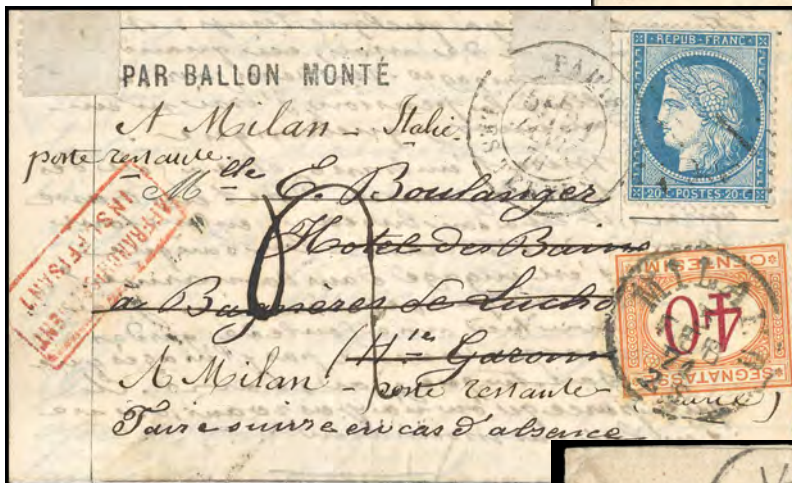 PAR BALLON MONTÉ
A Milan - Italie
poste restante
Mlle E. Boulanger
Hotel des Bains
à Bagnères de Luchon
(Hte Garonne)
A Milan - poste restante
Faire suivre en cas d'absence
AFFRANCHISSEMENT
INSUFFISANT
PARIS
REPUB·FRANC
20·C·POSTES·20·C
SEGNATASSE
40
CENTESIMI
MILANO